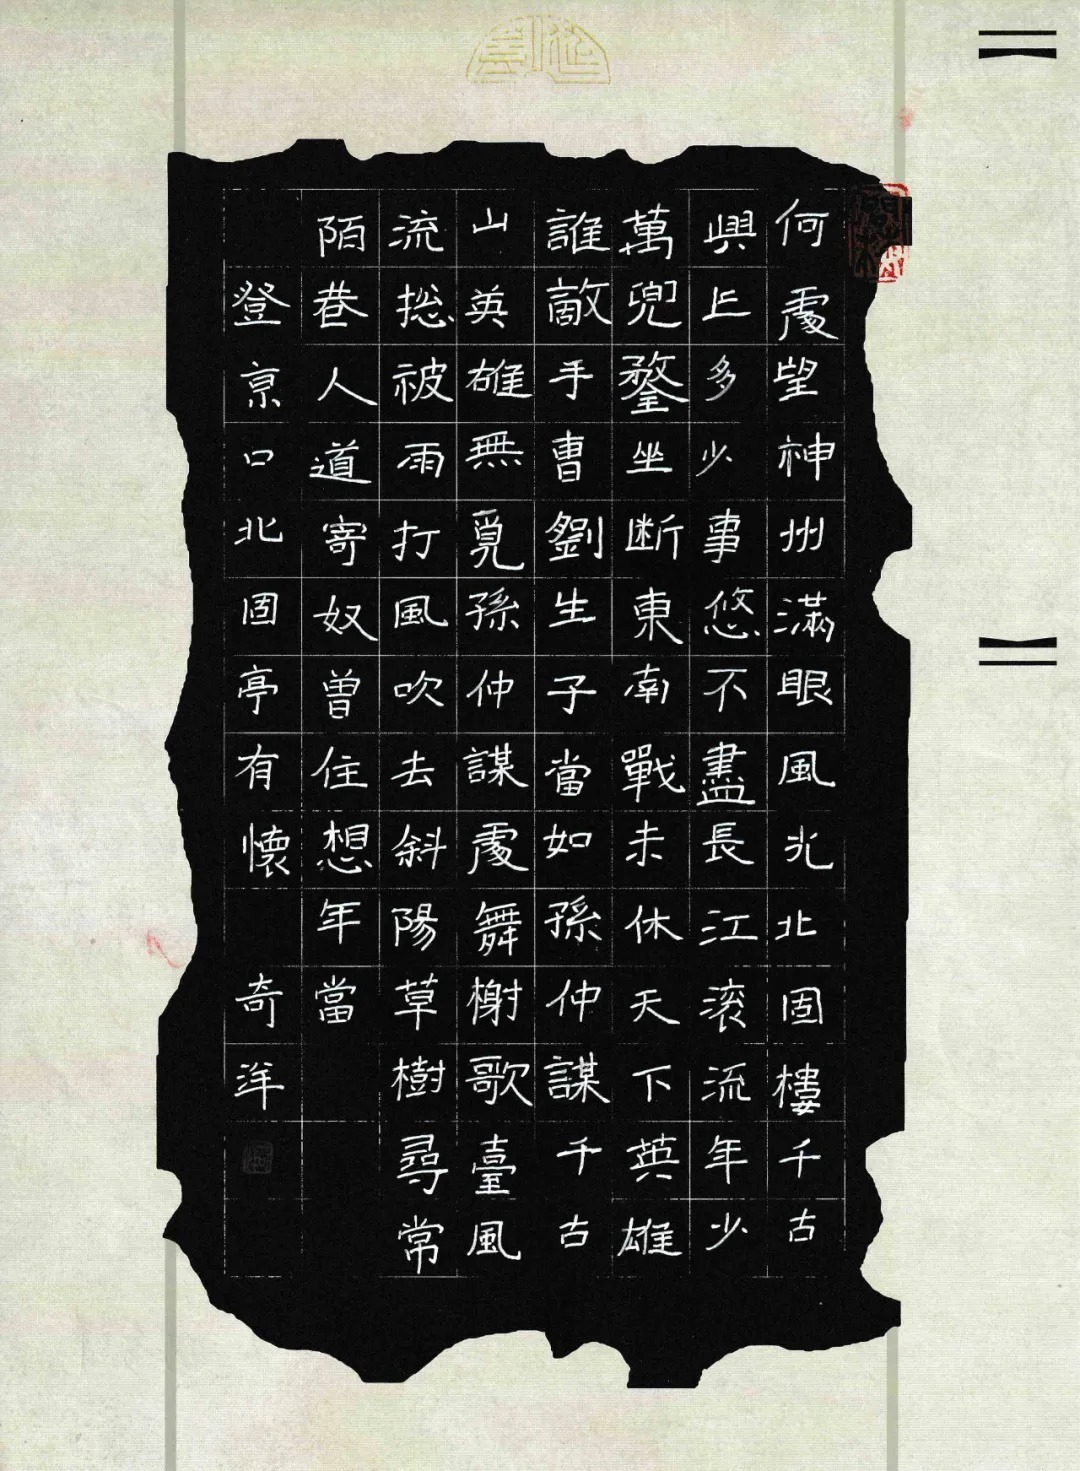 何處望神州滿眼風光北固樓千古
興亡多少事悠不盡長江滾流年少
萬兜鍪坐断東南戰未休天下英雄
誰敵手曹劉生子當如孫仲謀千古
山英雄無覓孫仲謀處舞榭歌臺風
流捴被雨打風吹去斜陽草樹尋常
陌巷人道寄奴曾住想年當
登京口北固亭有懷 奇洋